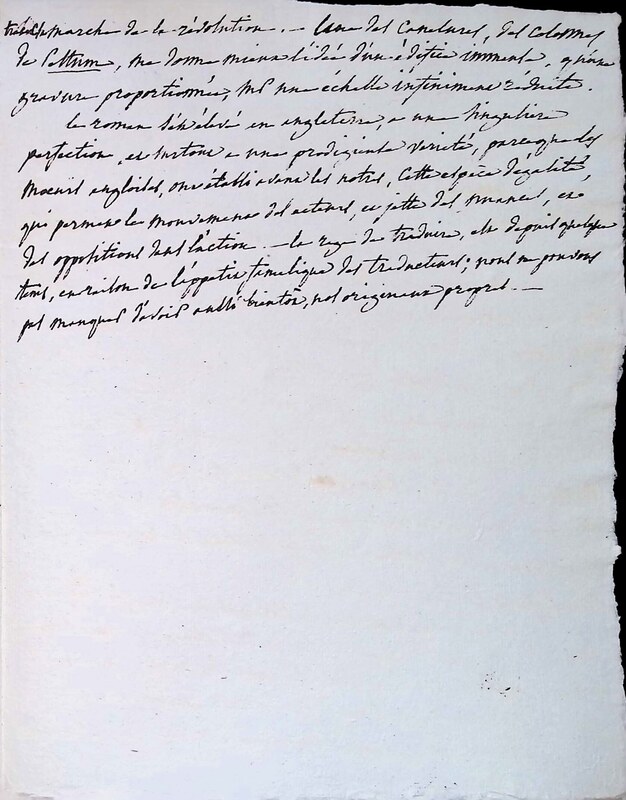 marche de la révolution. — l'une des canelures, des colonnes
de Pestum, me donne mieux l'idée d'un édifice immense, qu'une
gravure proportionnée, sur une échelle infiniment réduite.
le roman s'est élevé en angleterre, a une singuliere
perfection, et surtout a une prodigieuse varieté, parce que les
moeurs angloises, ont établi avant les notres, cette espèce d'égalité
qui permet le mouvement des acteurs, et jette des nuances, et
des oppositions dans l'action. — la rage de traduire, est depuis quelque
tems, en raison de l'appetit famelique des traducteurs; nous ne pouvons
pas manquer d'avoir aussi bientôt, nos originaux propres. —